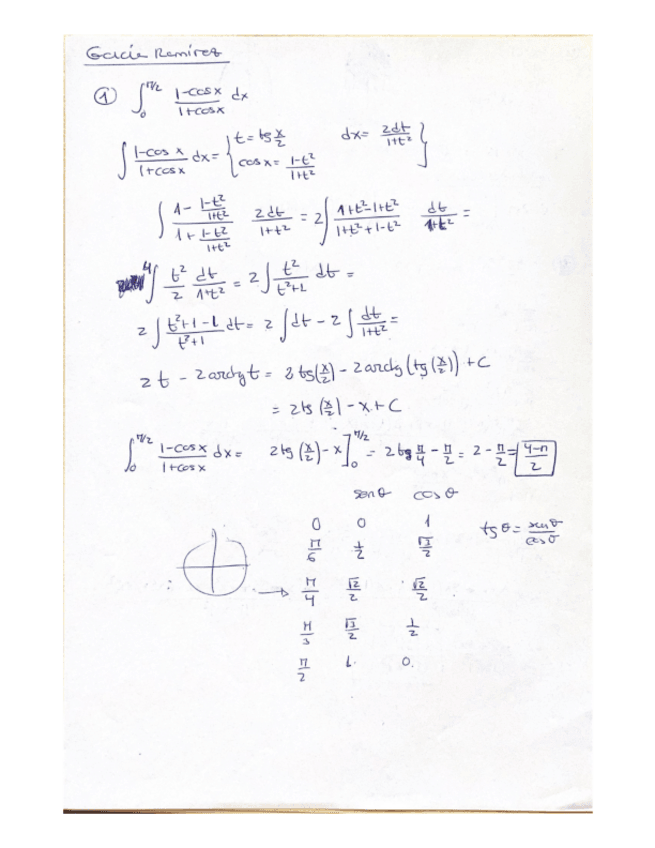 Garcia Ramirez
① ∫₀^π/2 (1-cosx)/(1+cosx) dx
∫ (1-cos x)/(1+cosx) dx = { t = tg x/2 dx = 2dt/(1+t²) }
cosx = (1-t²)/(1+t²)
∫ (1 - (1-t²)/(1+t²))/(1 + (1-t²)/(1+t²)) 2dt/(1+t²) = 2∫ (1+t²-1+t²)/(1+t²+1-t²) dt/(1+t²) =
4∫ t²/2 dt/(1+t²) = 2∫ t²/(t²+1) dt =
2∫ (t²+1-1)/(t²+1) dt = 2∫dt - 2∫ dt/(1+t²) =
2t - 2arctg t = 2 tg(x/2) - 2 arctg(tg(x/2)) + C
= 2 tg(x/2) - x + C
∫₀^π/2 (1-cosx)/(1+cosx) dx = 2 tg(x/2) - x ]₀^π/2 = 2 tg π/4 - π/2 = 2 - π/2 = (4-π)/2
senθ cosθ
0 0 1 tgθ = senθ/cosθ
π/6 1/2 √3/2
→ π/4 √2/2 √2/2
π/3 √3/2 1/2
π/2 1. 0.